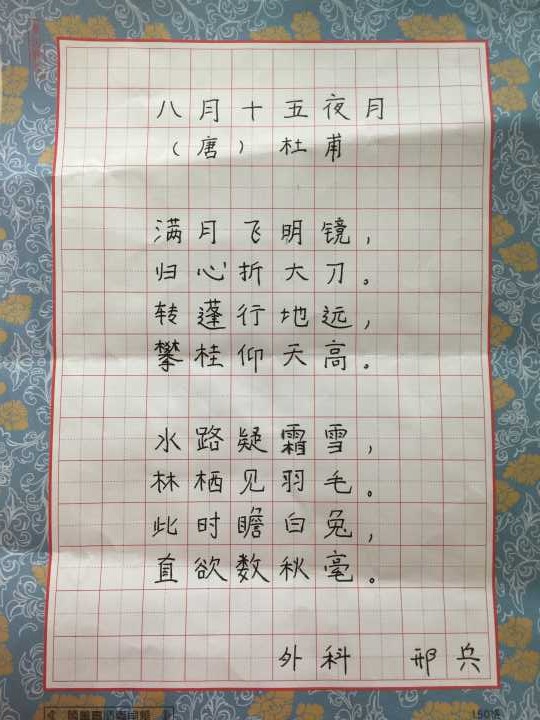 八月十五夜月
（唐）杜甫
满月飞明镜，
归心折大刀。
转蓬行地远，
攀桂仰天高。
水路疑霜雪，
林栖见羽毛。
此时瞻白兔，
直欲数秋毫。
外科 邢兵